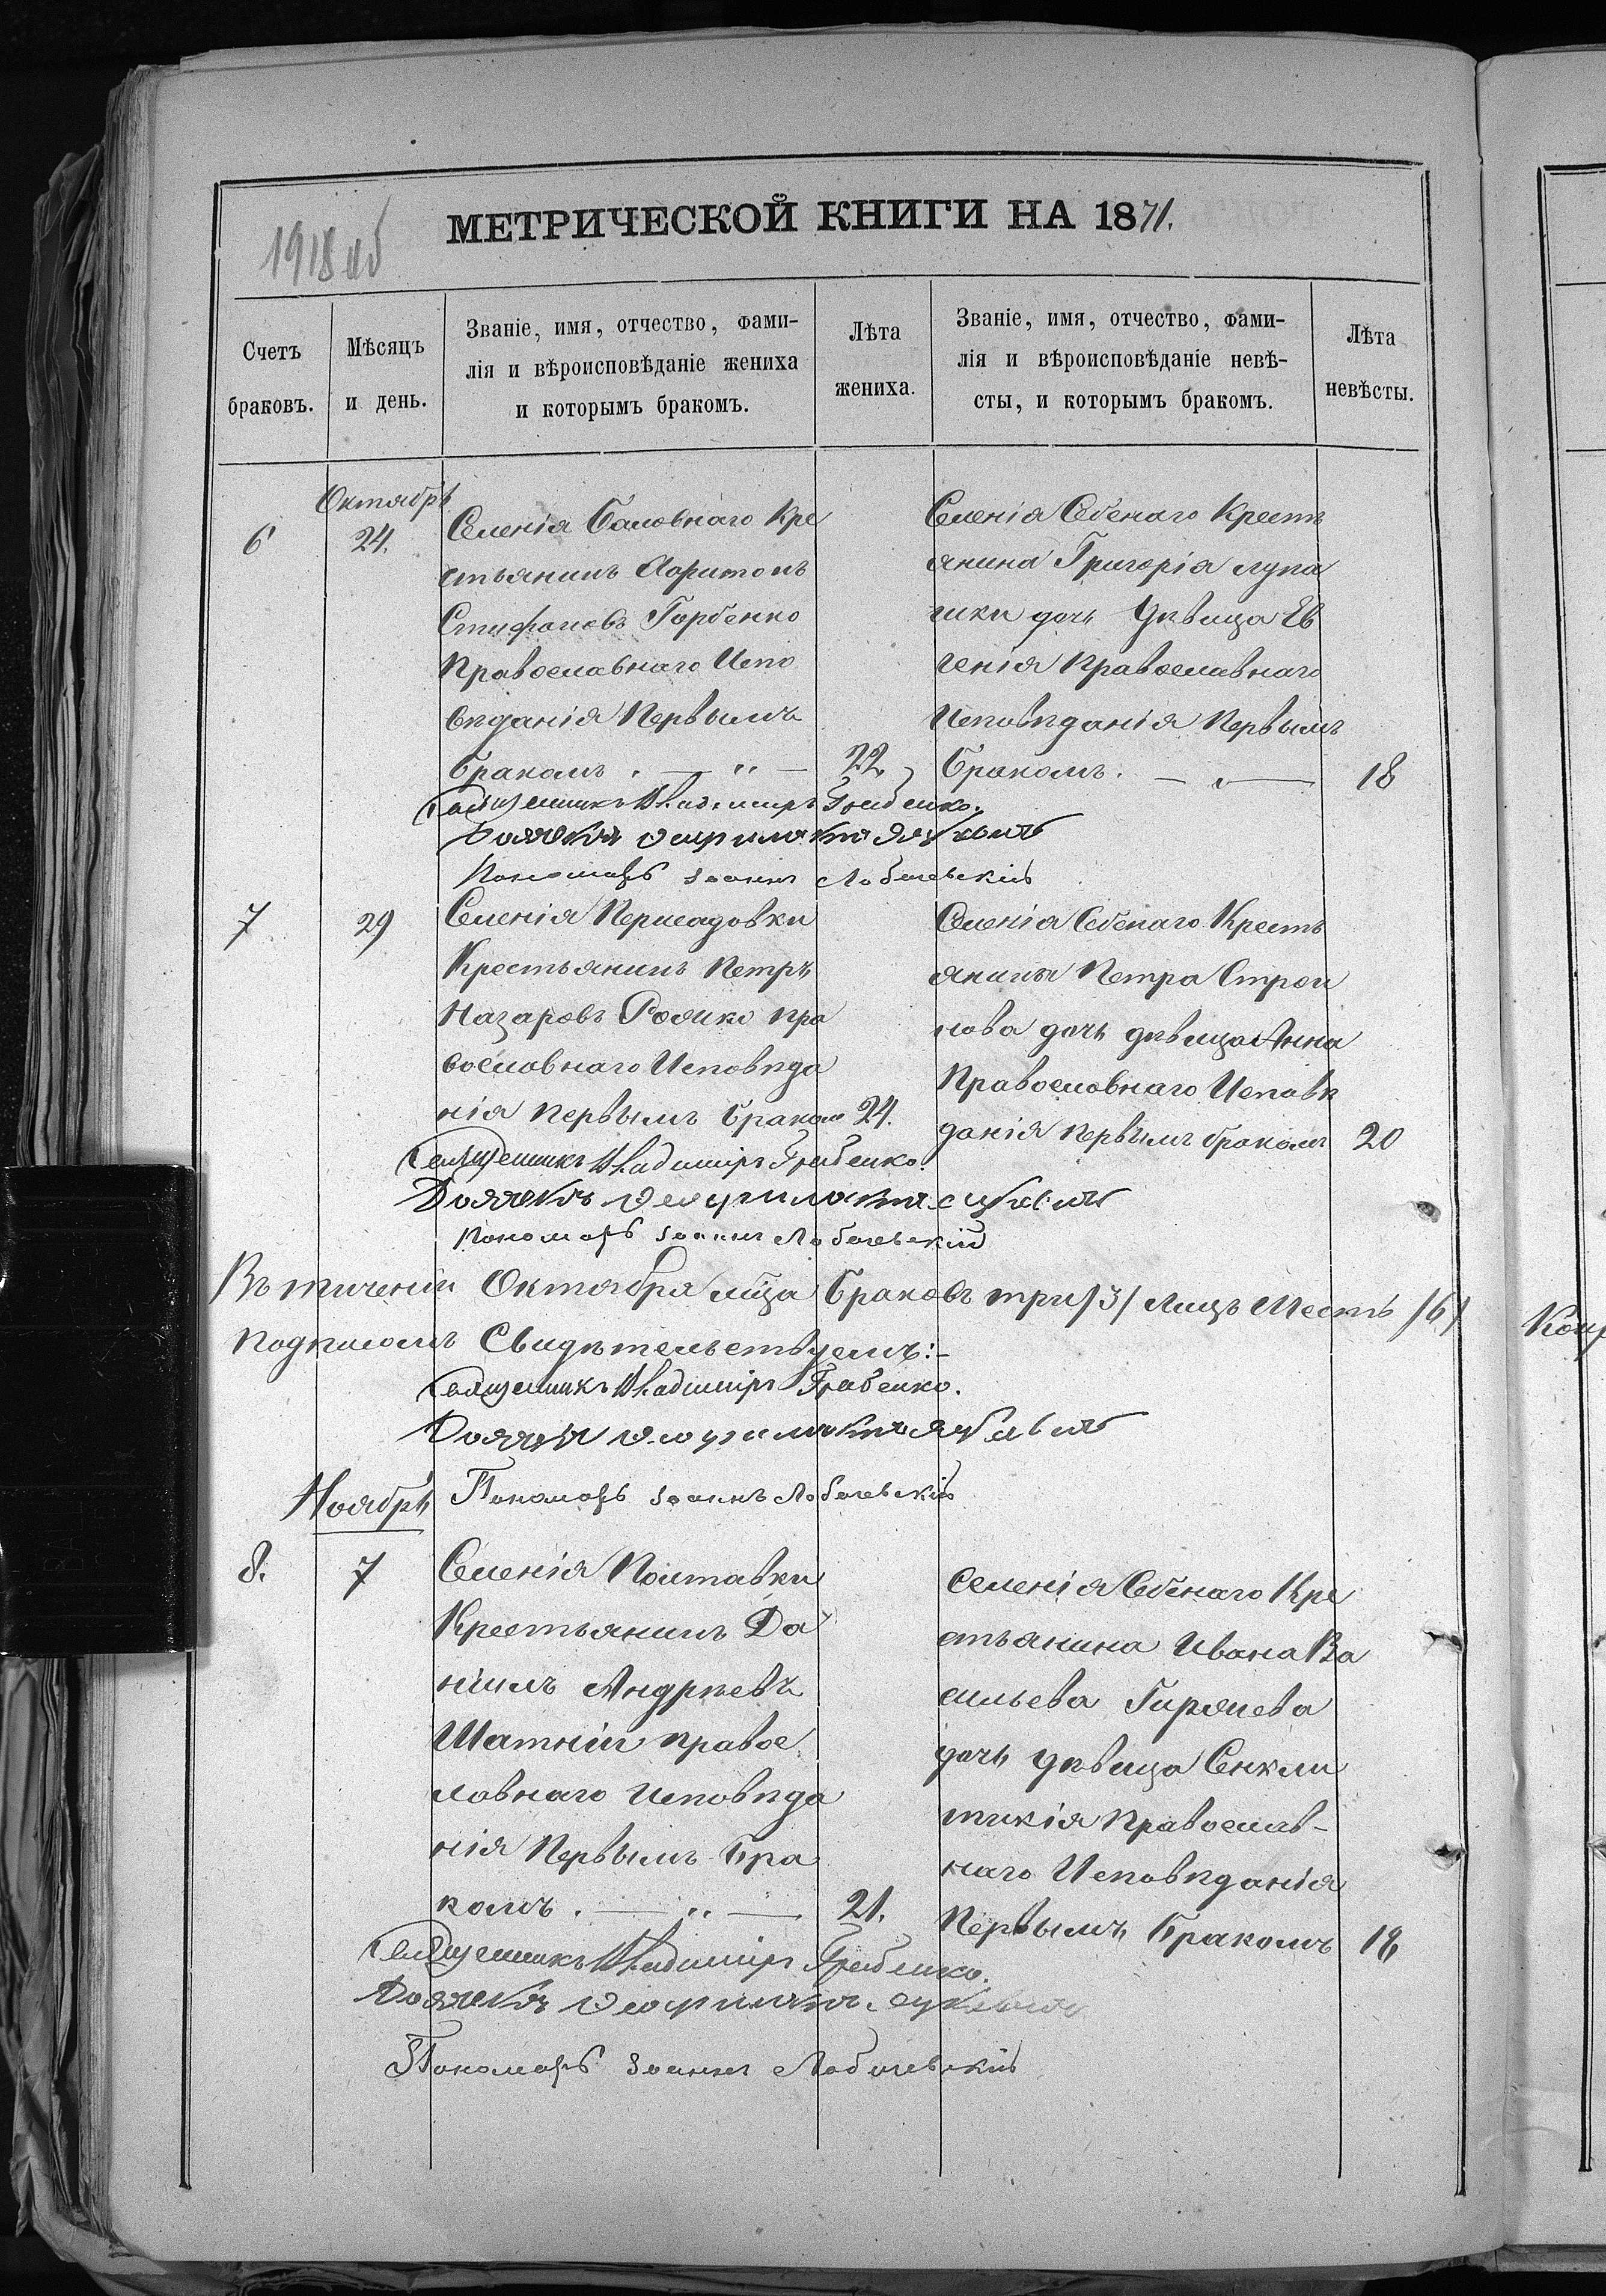 МЕТРИЧЕСКОЙ КНИГИ НА 1871.
1918 об
Счетъ браковъ.
Мѣсяцъ и день.
Званіе, имя, отчество, фами-
лія и вѣроисповѣданіе жениха
и которымъ бракомъ.
Лѣта жениха.
Званіе, имя, отчество, фами-
лія и вѣроисповѣданіе невѣ-
сты, и которымъ бракомъ.
Лѣта невѣсты.
Октябрь
6
24.
Селенія Баловнаго Кре
стьянинъ Харитонъ
Стефановъ Горбенко
Православнаго Испо
вѣданія Первымъ
бракомъ.
22
Селенія Себенаго Крестъ
янина Григорія Лупа
шки дочь Дѣвица Ев
генія Православнаго
Исповѣданія Первымъ
бракомъ.
18
Священникъ Владиміръ Гребенко.
Дьячекъ
Пономарь Іоаннъ Лобачевскій
7
29
Селенія Пересадовки
Крестьянинъ Петръ
Назаровъ Розико Пра
вославнаго Исповѣда
нія Первымъ бракомъ
24.
Селенія Себенаго Кресть
янина Петра Строи
нова дочь дѣвица Анна
Православнаго Исповѣ
данія Первымъ бракомъ
20
Священникъ Владиміръ Гребенко.
Дьячекъ
Пономарь Іоаннъ Лобачевскій
Въ теченіи Октября мца браковъ три /3/ лицъ Шесть /6/
Подписомъ Свидѣтельствуемъ:-
Священникъ Владиміръ Гребенко.
Дьячекъ
Пономарь Іоаннъ Лобачевскій
Ноябрь
8.
7
Селенія Полтавки
Крестьянинъ Да
ніилъ Андреевъ
Шатній Правос
лавнаго Исповѣда
нія Первымъ Бра
комъ.
21.
Селенія Себенаго Кре
стьянина Ивана Ва
сильева Гирячева
дочь дѣвица Сенкли
тикія Православ-
наго Исповѣданія
Первымъ Бракомъ
18
Священникъ Владиміръ Гребенко.
Дьячекъ
Пономарь Іоаннъ Лобачевскій